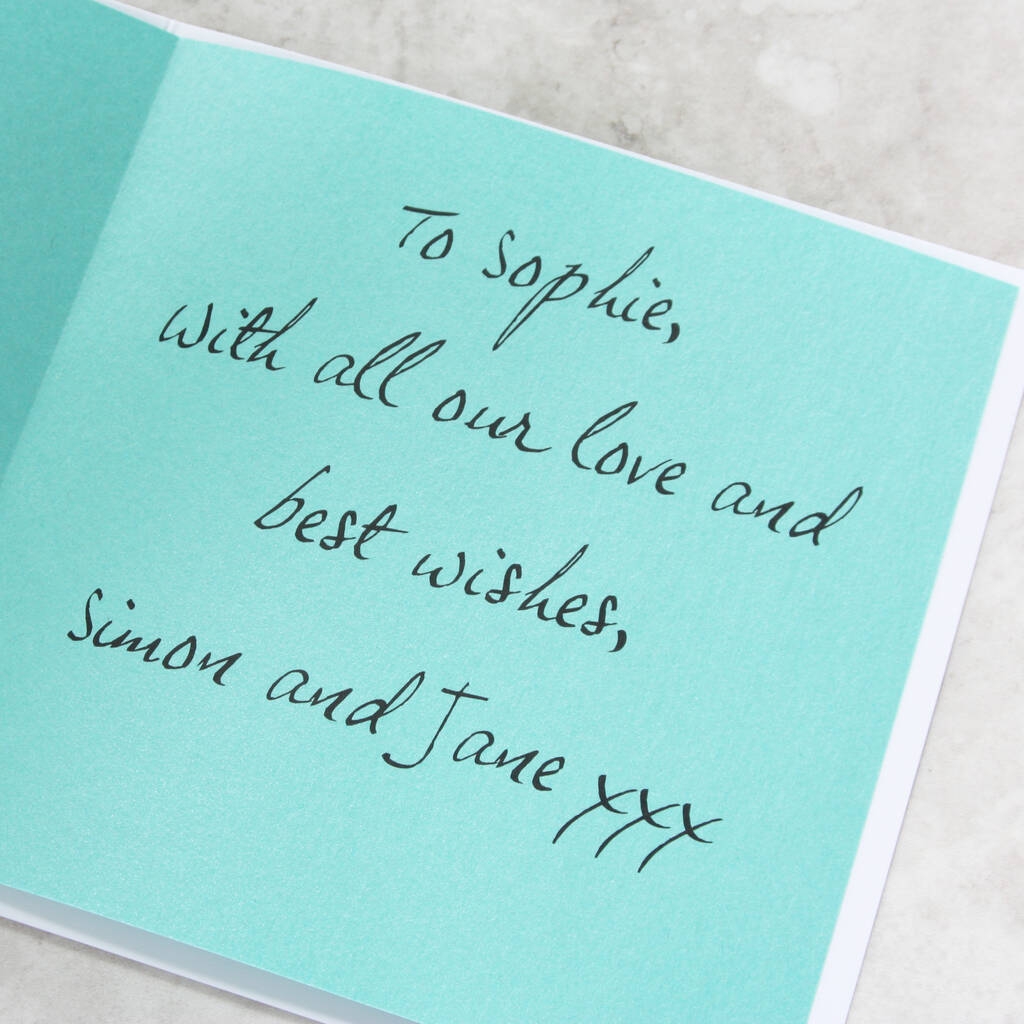 To Sophie,
with all our love and
best wishes,
Simon and Jane xxx